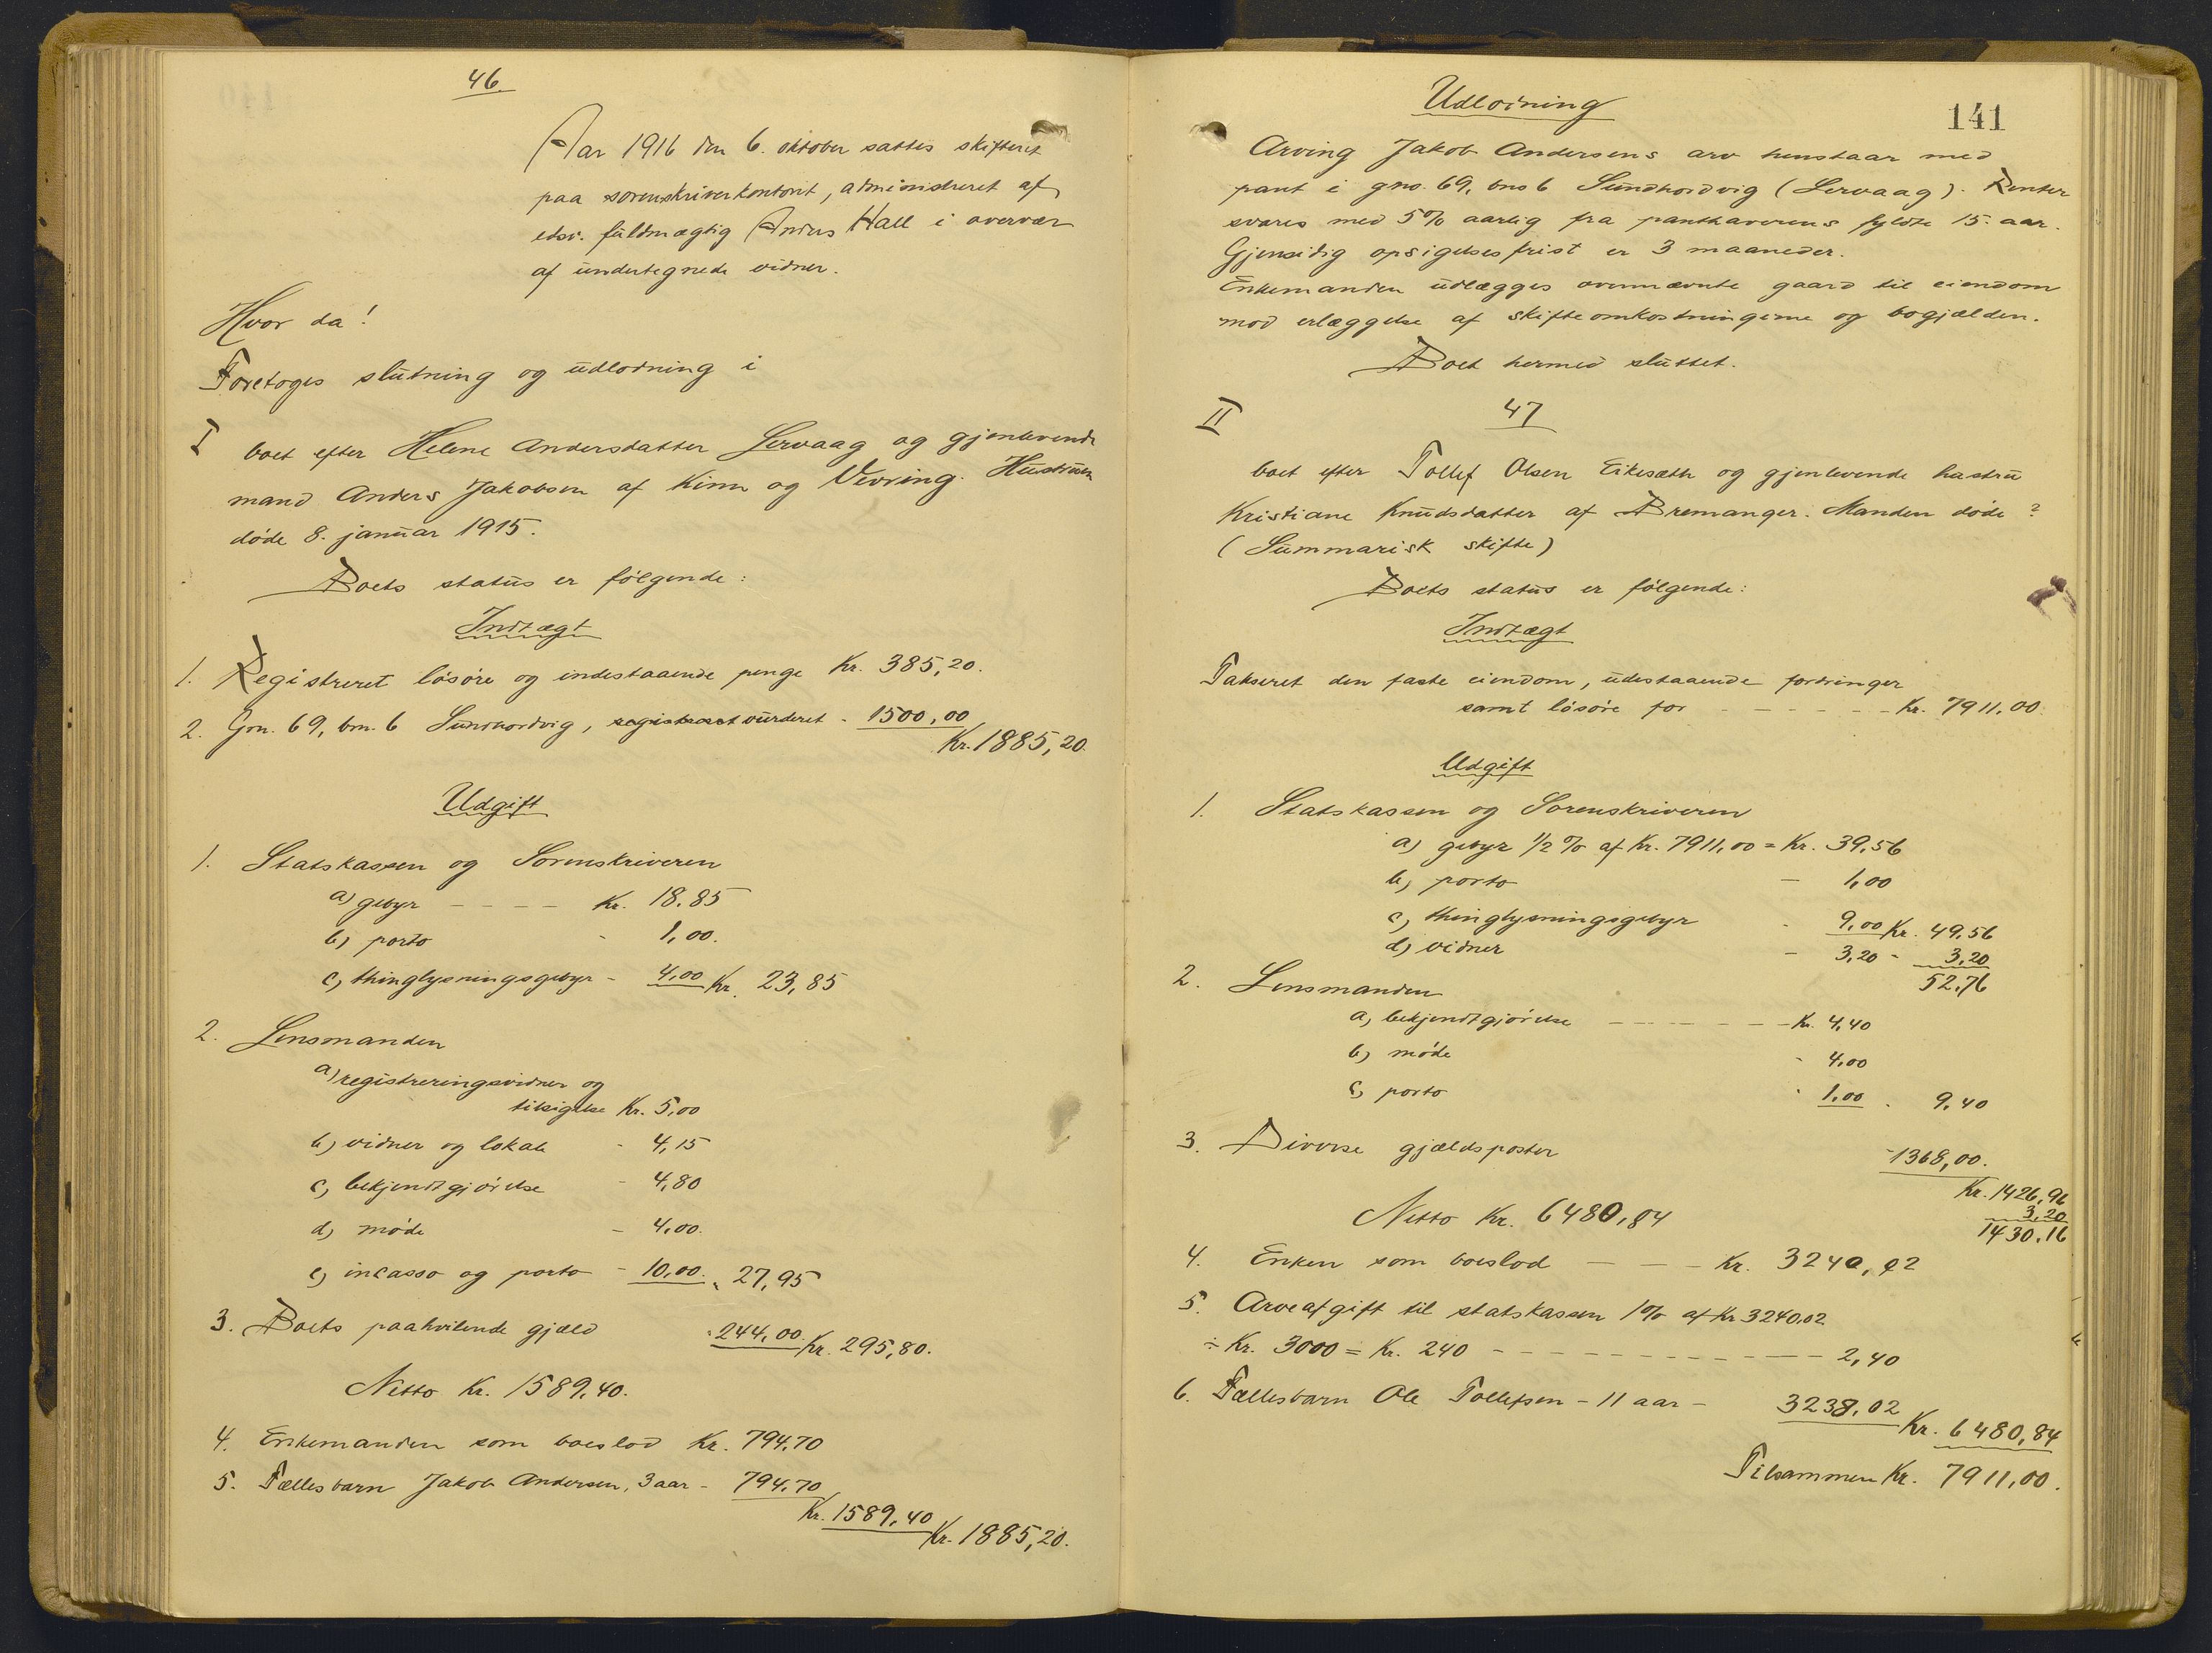 46.
Aar 1916 den 6. oktober sattes skifteret
paa sorenskriverkontoret, administreret af
edsv. fuldmægtig Anders Hall i overvær
af undertegnede vidner.
Hvor da!
Foretoges slutning og udlodning i
I boet efter Helene Andersdatter Servaag og gjenlevende
mand Anders Jakobsen af Kinn og Vevring. Hustruen
døde 8. januar 1915.
Boets status er følgende:
Indtægt
1. Registreret løsøre og indestaaende penge Kr. 385,20.
2. Grn. 69, brn. 6 Sundhordvig, registreret vurderet - 1500,00
Kr. 1885,20.
Udgift
1. Statskassen og Sorenskriveren
a) gebyr - - - - Kr. 18.85
b) porto - 1,00.
c) thinglysningsgebyr - 4,00 Kr. 23,85
2. Lensmanden
a) registreringsvidner og
tilsigelse Kr. 5,00
b) vidner og lokale - 4,15
c) bekjendtgjørelse - 4,80
d) møde - 4,00.
e) incasso og porto - 10,00. - 27,95
3. Boets paahvilende gjæld - 244,00. Kr. 295,80.
Netto Kr. 1589,40.
4. Enkemanden som boeslod Kr. 794,70
5. Fællesbarn Jakob Andersen, 3 aar - 794,70
Kr. 1589,40
Kr. 1885,20.
Udlodning
141
Arving Jakob Andersens arv henstaar med
pant i gno. 69, bno 6 Sundhordvig (Servaag). Renter
svares med 5% aarlig fra panthaverens fyldte 15. aar.
Gjensidig opsigelsesfrist er 3 maaneder.
Enkemanden udlægges ovennævnte gaard til eiendom
mod erlæggelse af skifteomkostningerne og bogjælden.
Boet hermed sluttet.
II 47
boet efter Tollef Olsen Eikesæth og gjenlevende hustru
Kristiane Knudsdatter af Bremanger. Manden døde ?
(Summarisk skifte)
Boets status er følgende:
Indtægt
Takseret den faste eiendom, udestaaende fordringer
samt løsøre for - - - - - Kr. 7911,00.
Udgift
1. Statskassen og Sorenskriveren
a) gebyr 1/2 % af Kr. 7911,00 = Kr. 39,56
b) porto - 1,00
c) thinglysningsgebyr - 9,00 Kr. 49,56
d) vidner - 3,20 - 3,20
52,76
2. Lensmanden
a) bekjendtgjørelse - - - - - - Kr. 4,40
b) møde - 4,00
c) porto - 1,00 - 9,40
3. Diverse gjældsposter - 1368,00.
Kr. 1426,96
3,20
1430,16
Netto Kr. 6480,84
4. Enken som boeslod - - - Kr. 3240,42
5. Arveafgift til statskassen 1% af Kr 3240,02
÷ Kr. 3000 = Kr. 240 - - - - - - - - - 2,40
6. Fællesbarn Ole Tollefsen - 11 aar - 3238,02
Kr. 6480,84
Tilsammen Kr. 7911,00.